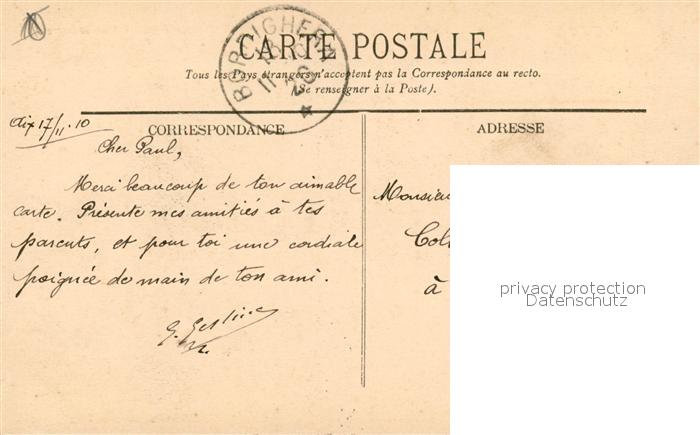 CARTE POSTALE
Tous les Pays étrangers n'acceptent pas la Correspondance au recto.
(Se renseigner à la Poste).
BORDIGHERA
Aix 17/11.10
CORRESPONDANCE
Cher Paul,
Merci beaucoup de ton aimable
carte. Présente mes amitiés à tes
parents, et pour toi une cordiale
poignée de main de ton ami.
G.
ADRESSE
Monsieu
à
privacy protection
Datenschutz